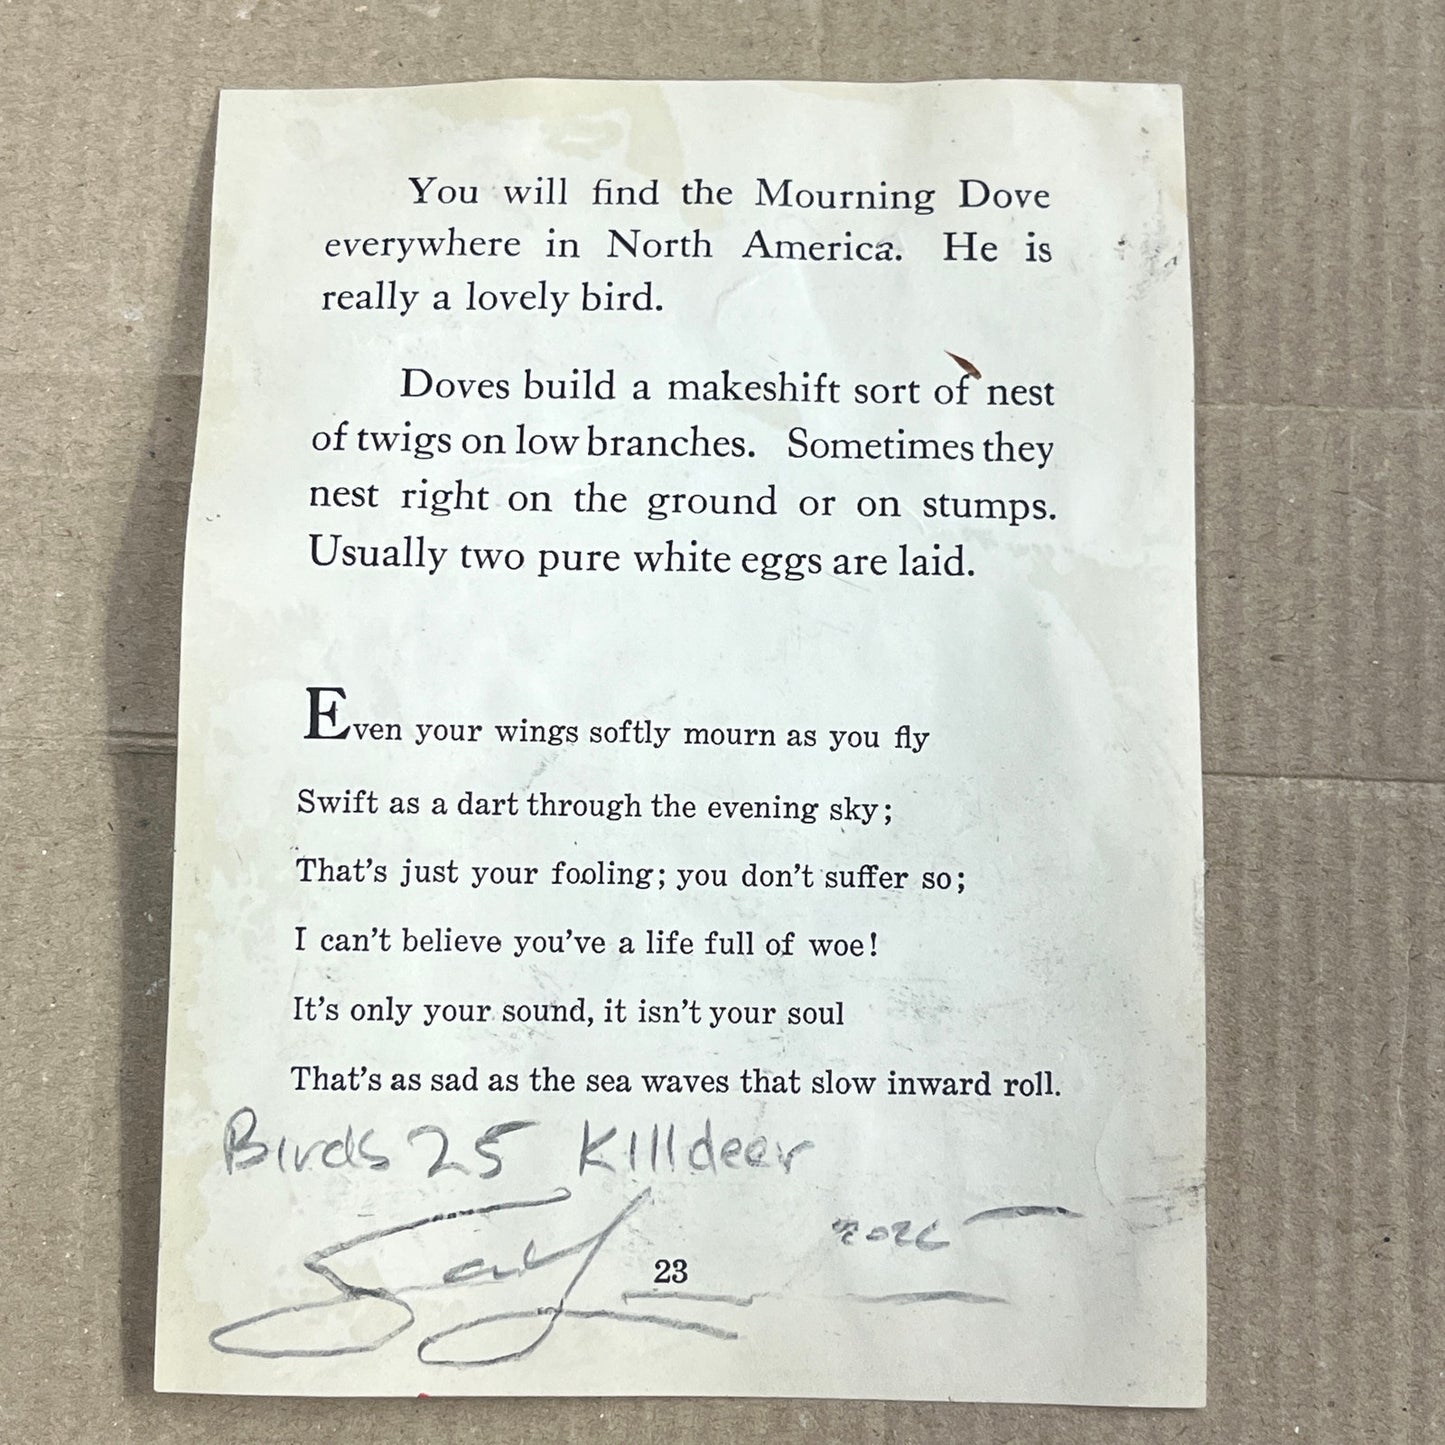 You will find the Mourning Dove
everywhere in North America. He is
really a lovely bird.
Doves build a makeshift sort of nest
of twigs on low branches. Sometimes they
nest right on the ground or on stumps.
Usually two pure white eggs are laid.
Even your wings softly mourn as you fly
Swift as a dart through the evening sky;
That's just your fooling; you don't suffer so;
I can't believe you've a life full of woe!
It's only your sound, it isn't your soul
That's as sad as the sea waves that slow inward roll.
Birds 25 Killdeer
23